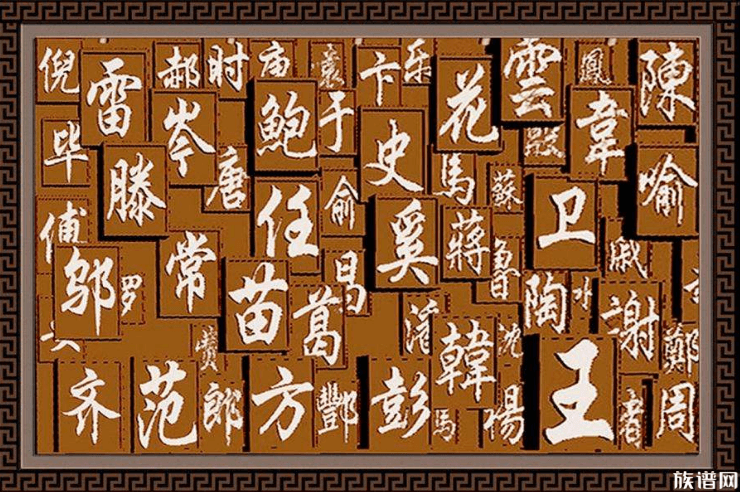 倪 雷 郝 时 庙 袁 卞 乐 花 雲 鳳 陳
毕 滕 岑 唐 鲍 于 史 馬 蘇 殷 韋 喻
俞 任 奚 蔣 卫
邬 罗 常 苗 葛 昌 魯 陶 戚 謝
費 韓 沈 鄭
齐 范 郎 方 酆 彭 馬 王 周
族谱网